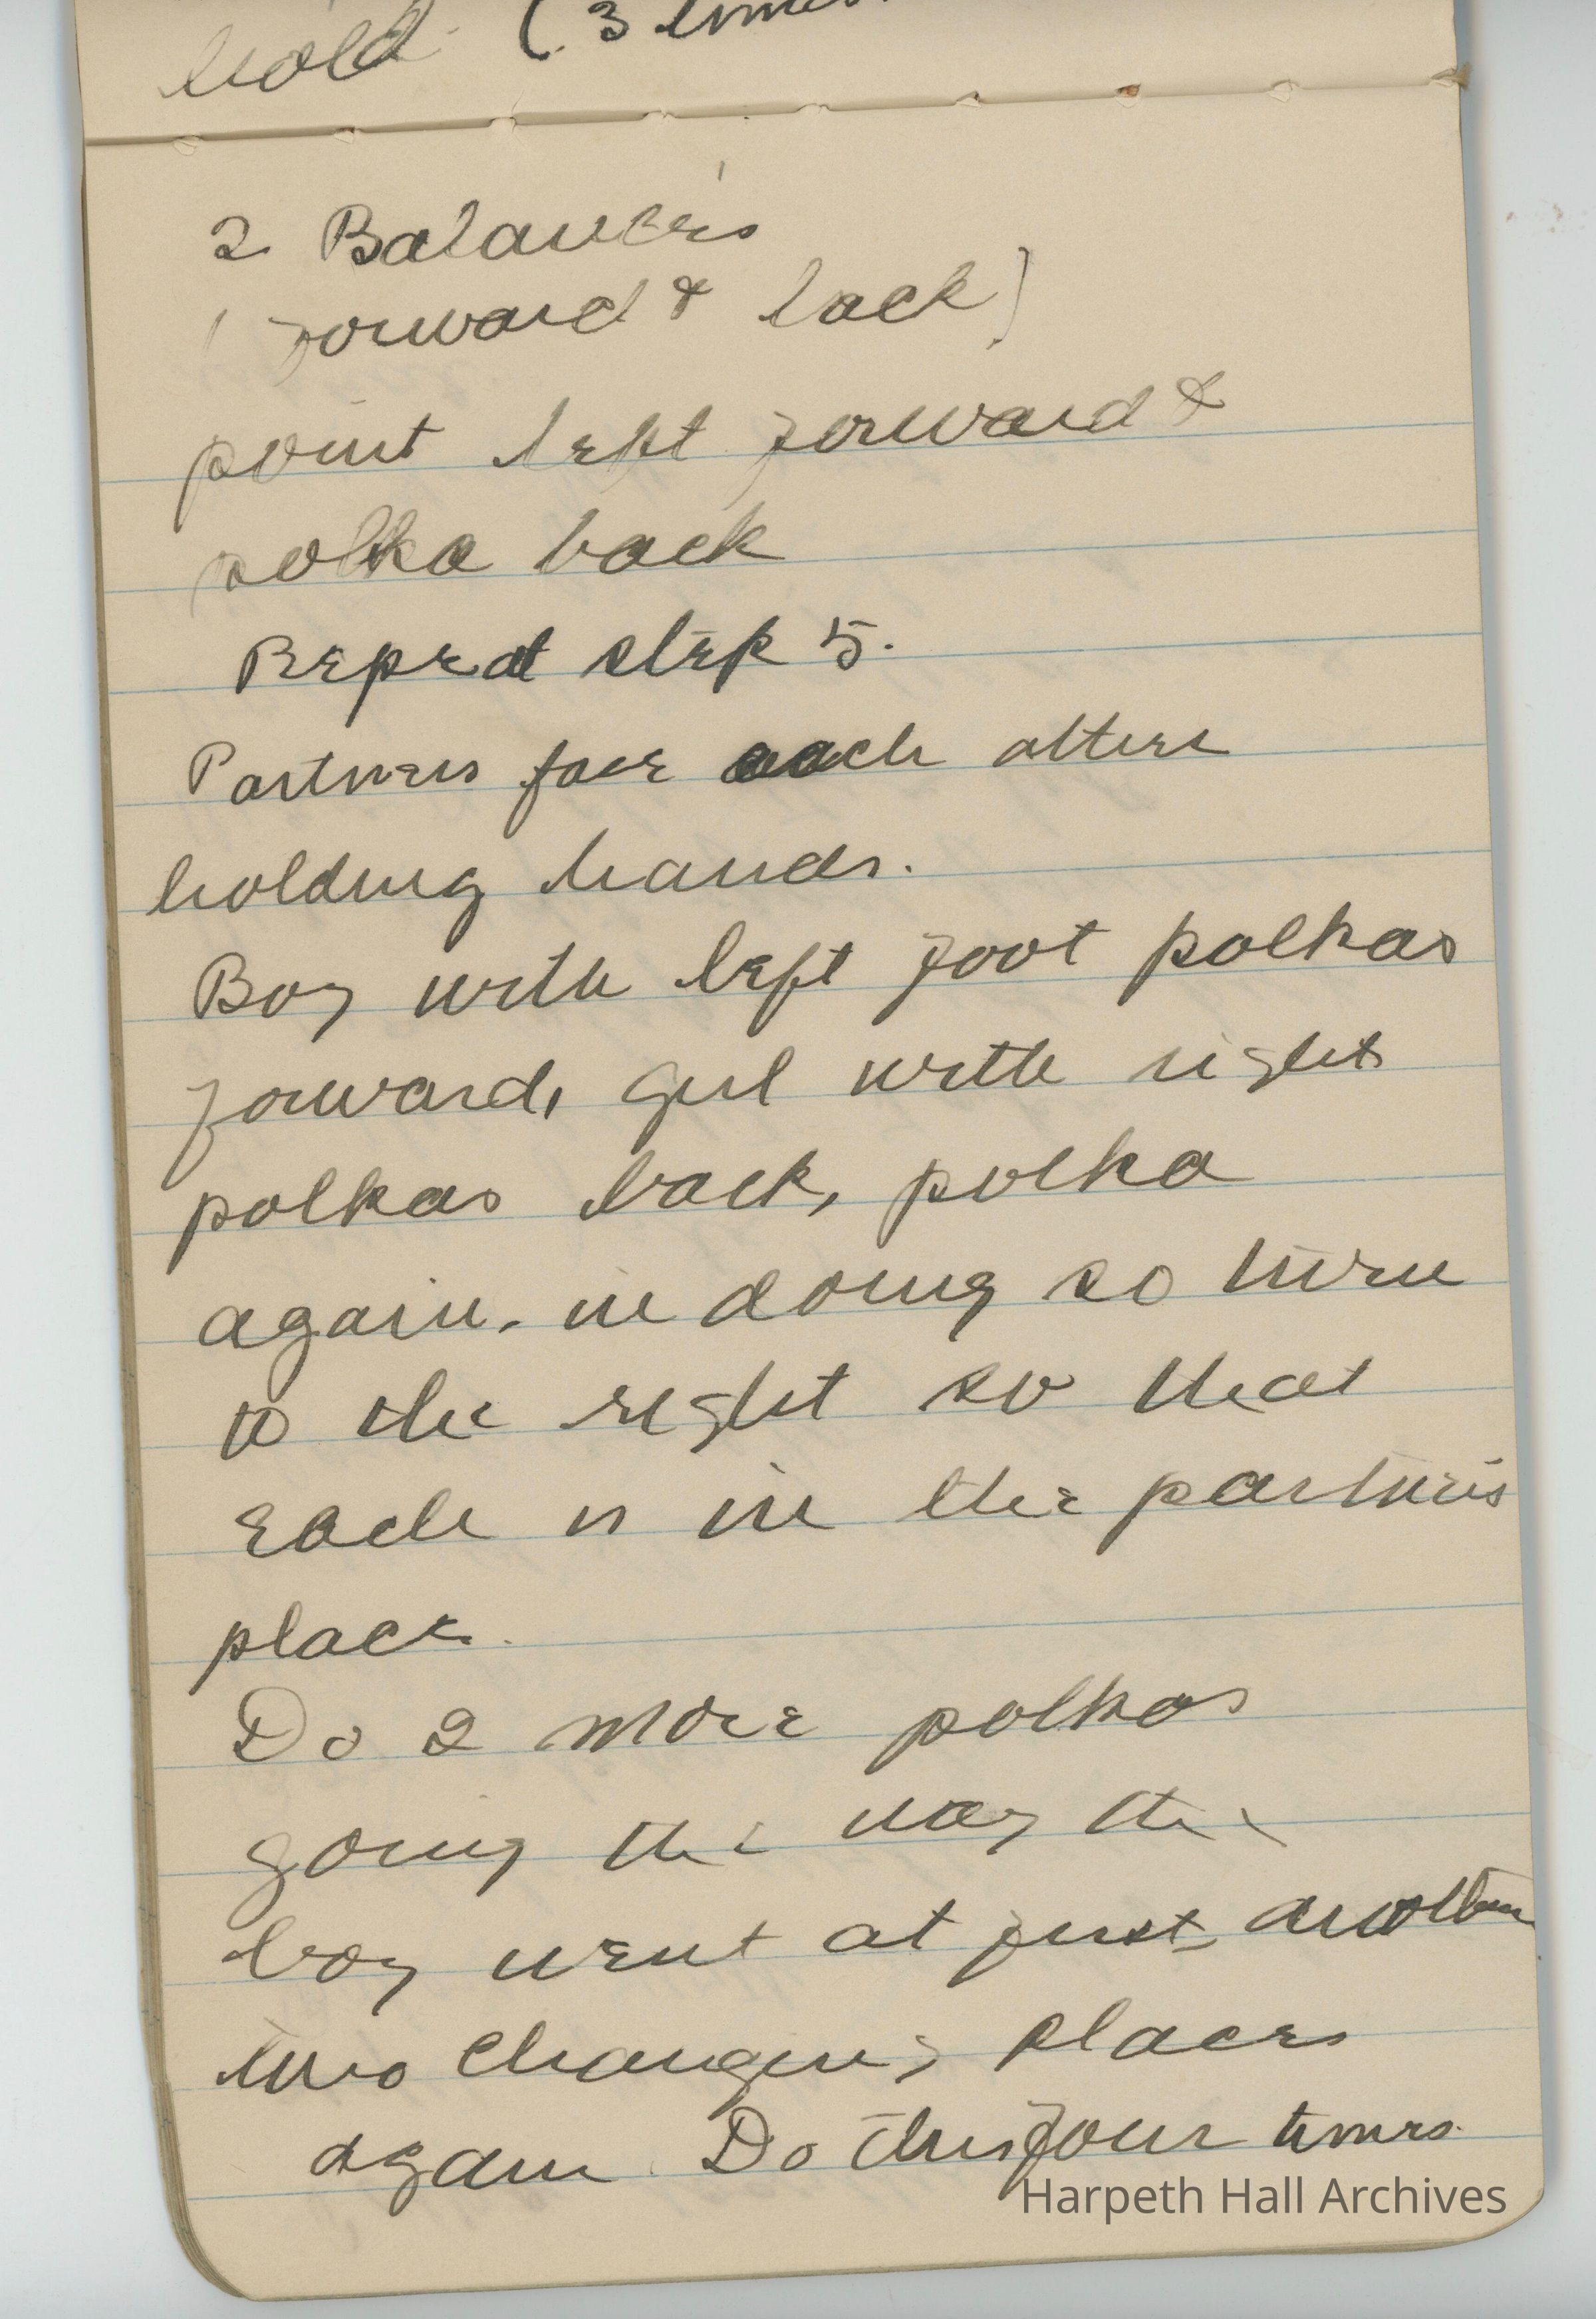 hold (3 times.
2 Balances
(forward & back)
point left forward &
polka back
Repeat step 5.
Partners face each other
holding hands.
Boy with left foot polkas
forward, girl with right
polkas back, polka
again. in doing so turn
to the right so that
each is in the partners
place.
Do 2 more polkas
going the way the
boy went at first, another
two changing places
again. Do this four times.
Harpeth Hall Archives